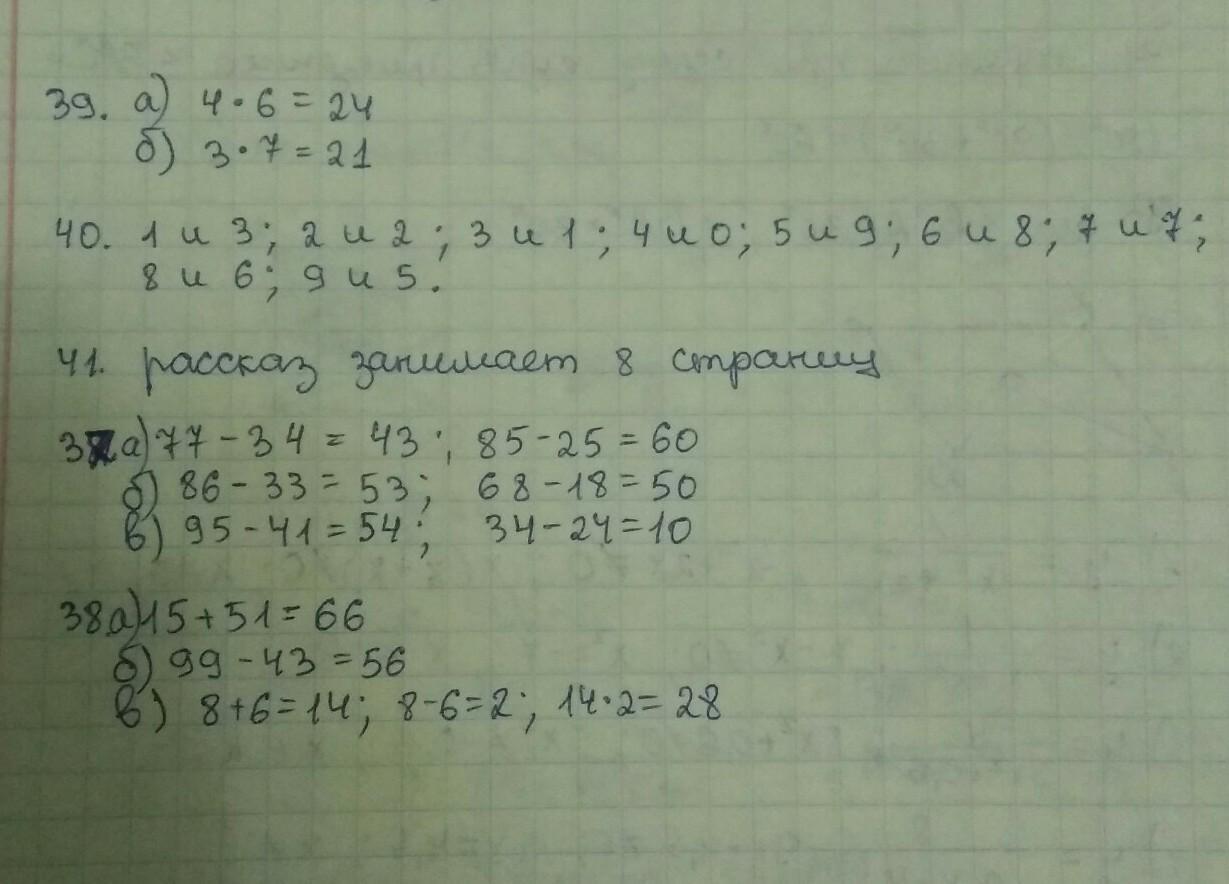 39. а) 4·6 = 24
б) 3·7 = 21
40. 1 и 3; 2 и 2; 3 и 1; 4 и 0; 5 и 9; 6 и 8; 7 и 7;
8 и 6; 9 и 5.
41. рассказ занимает 8 страниц
37а) 77-34 = 43; 85-25 = 60
б) 86-33 = 53; 68-18 = 50
в) 95-41 = 54; 34-24 = 10
38а) 15+51 = 66
б) 99-43 = 56
в) 8+6=14; 8-6=2; 14·2= 28